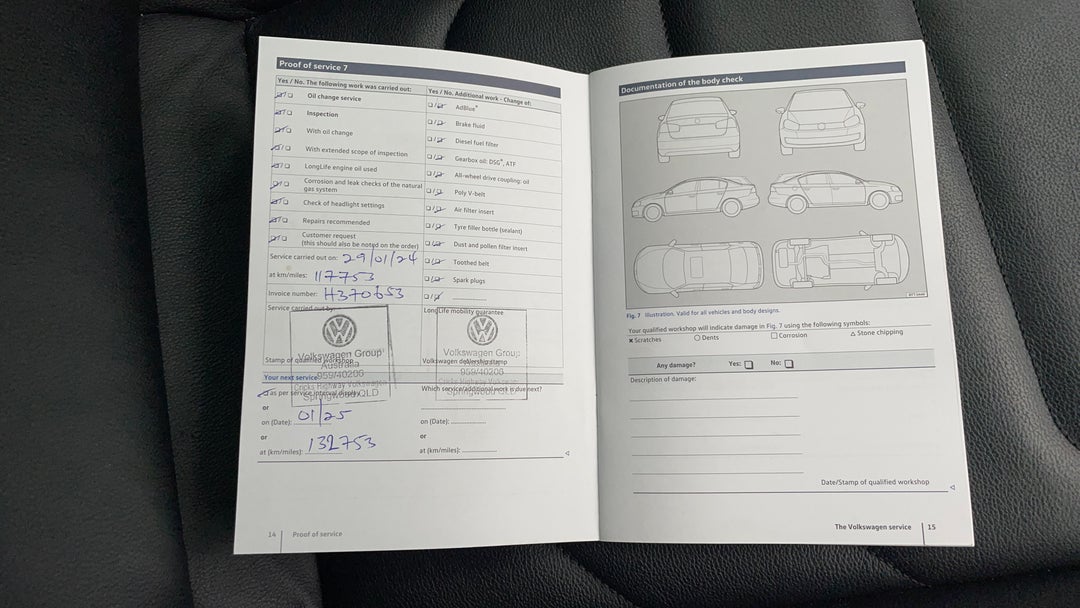 Proof of service 7
Yes / No. The following work was carried out:
Oil change service
Inspection
With oil change
With extended scope of inspection
LongLife engine oil used
Corrosion and leak checks of the natural
gas system
Check of headlight settings
Repairs recommended
Customer request
(this should also be noted on the order)
Service carried out on: 29/01/24
at km/miles: 117753
Invoice number: H370653
Service carried out by:
Volkswagen Group
Australia
959/40206
Cricks Highway Volkswagen
Springwood QLD
Stamp of qualified workshop
Your next service
as per service interval display
or
on (Date): 01/25
or
at (km/miles): 132753
Yes / No. Additional work - Change of:
AdBlue®
Brake fluid
Diesel fuel filter
Gearbox oil: DSG®, ATF
All-wheel drive coupling: oil
Poly V-belt
Air filter insert
Tyre filler bottle (sealant)
Dust and pollen filter insert
Toothed belt
Spark plugs
LongLife mobility guarantee
Volkswagen Group
Australia
959/40206
Cricks Highway Volkswagen
Springwood QLD
Volkswagen dealership stamp
Which service/additional work is due next?
on (Date):
or
at (km/miles):
14 Proof of service
Documentation of the body check
Fig. 7 Illustration. Valid for all vehicles and body designs.
Your qualified workshop will indicate damage in Fig. 7 using the following symbols:
× Scratches ○ Dents □ Corrosion △ Stone chipping
Any damage? Yes: No:
Description of damage:
Date/Stamp of qualified workshop
The Volkswagen service 15